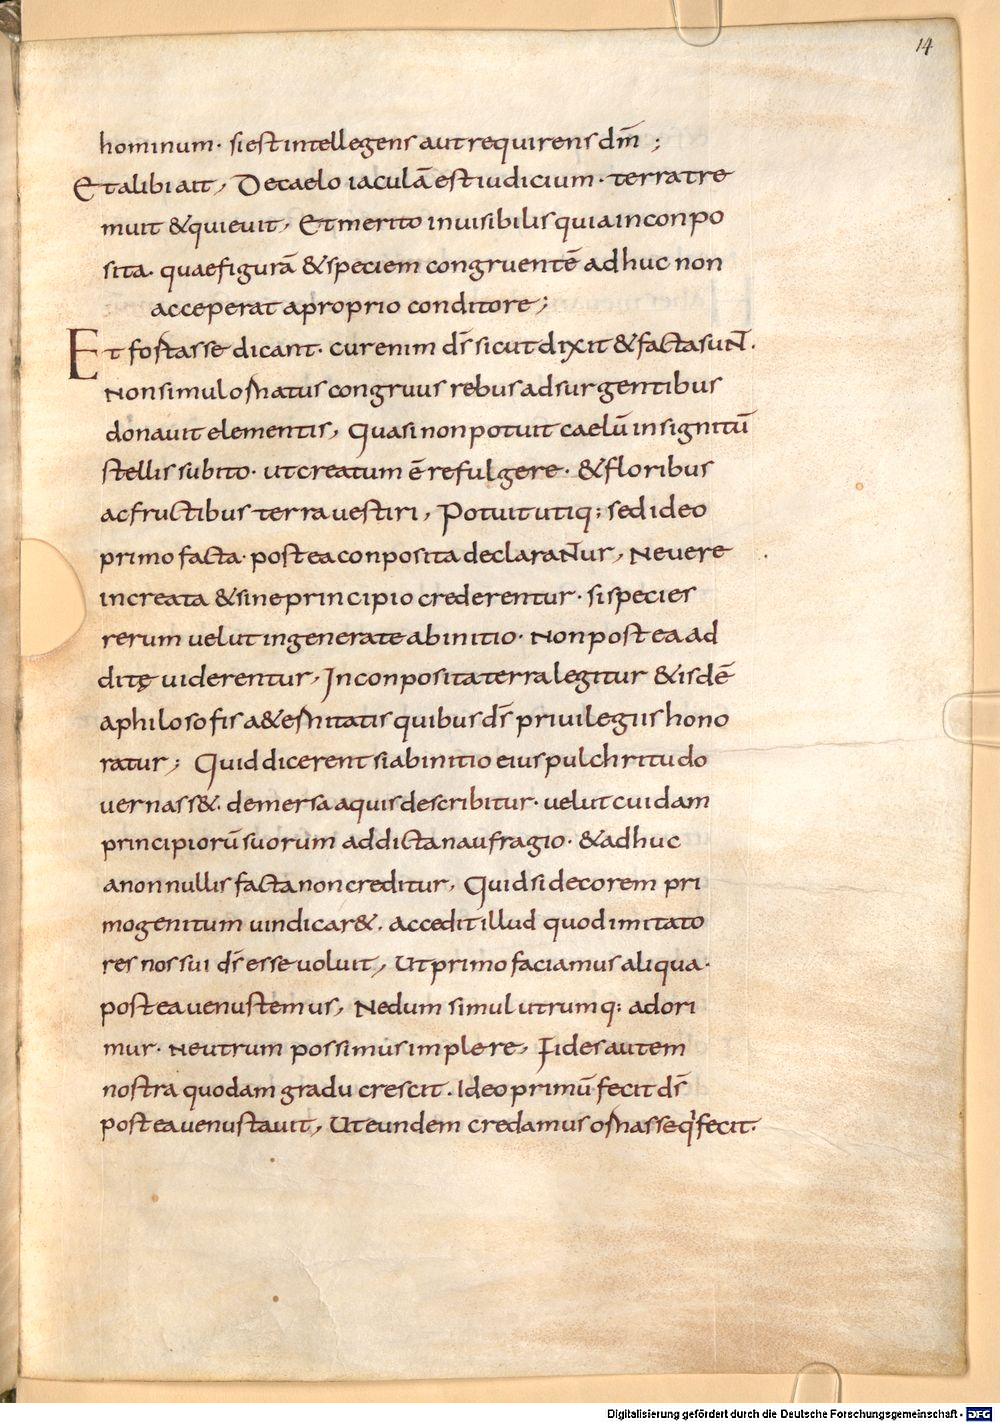 14
hominum· si est intellegens aut requirens dm̄ ;
Et alibi ait, De caelo iaculā est iudicium· terra tre
muit & quieuit, Et merito inuisibilis quia inconpo
sita· quae figurā & speciem congruentē adhuc non
acceperat a proprio conditore ;
Et fortasse dicant· cur enim ds̄ sicut dixit & facta sunt·
Non simul ornatus congruus rebus adsurgentibus
donauit elementis, Quasi non potuit caelū insignitū
stellis subito· ut creatum ē refulgere· & floribus
ac fructibus terra uestiri, Potuit utiq; sed ideo
primo facta· postea conposita declarantur, Ne uere
increata & sine principio crederentur· si species
rerum uelut ingenerate ab initio· Non postea ad
ditę uiderentur, Inconposita terra legitur & isdē
a philosofis a&ernitatis quibus ds̄ priuilegiis hono
ratur ; Quid dicerent si ab initio eius pulchritudo
uernass&. demersa aquis describitur· uelut cuidam
principiorū suorum addicta naufragio· & adhuc
a nonnullis facta non creditur, Quid si decorem pri
mogenitum uindicar&. accedit illud quod imitato
res nos sui ds̄ esse uoluit, Ut primo faciamus aliqua·
postea uenustemus, Ne dum simul utrumq; adori
mur· neutrum possimus implere, Fides autem
nostra quodam gradu crescit. Ideo primū fecit ds̄
postea uenustauit, Ut eundem credamus ornasse q' fecit·
Digitalisierung gefördert durch die Deutsche Forschungsgemeinschaft - DFG